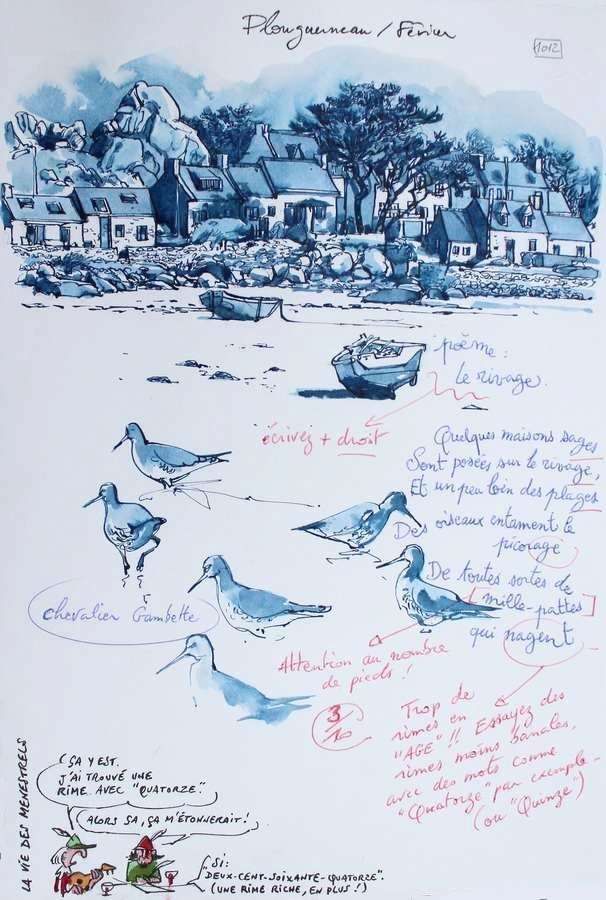 Plouguerneau / Février
1012
poème :
Le rivage.
écrivez + droit
Quelques maisons sages
Sont posées sur le rivage,
Et un peu loin des plages
Des oiseaux entament le
picorage
De toutes sortes de
mille-pattes
qui nagent
chevalier Gambette
Attention au nombre
de pieds !
3/10
Trop de
rimes en
"AGE" !! Essayez des
rimes moins banales,
avec des mots comme
"Quatorze" par exemple
(ou "Quinze")
LA VIE DES MENESTRELS
ÇA Y EST.
J'AI TROUVÉ UNE
RIME AVEC "QUATORZE".
ALORS SA, ÇA M'ÉTONNERAIT !
SI :
"DEUX-CENT-SOIXANTE-QUATORZE".
(UNE RIME RICHE, EN PLUS !)